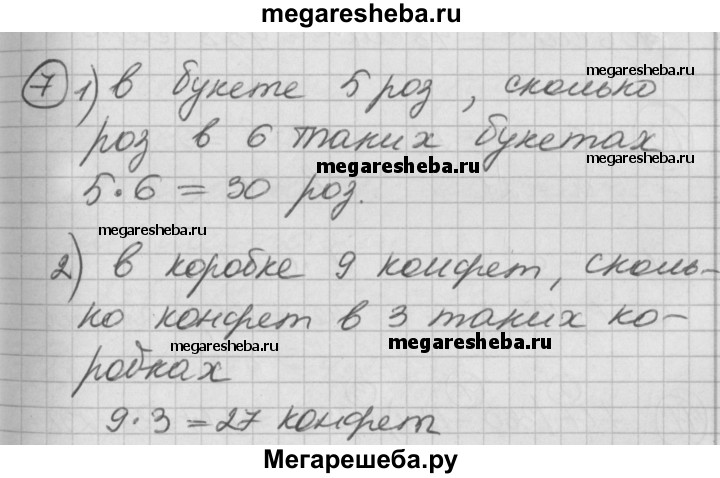 megaresheba.ru
7 1) в букете 5 роз, сколько
megaresheba.ru
роз в 6 таких букетах
megaresheba.ru
megaresheba.ru
5·6 = 30 роз.
megaresheba.ru
2) в коробке 9 конфет, сколь-
ко конфет в 3 таких ко-
megaresheba.ru
megaresheba.ru
робках
9·3 = 27 конфет
Мегарешеба.ру